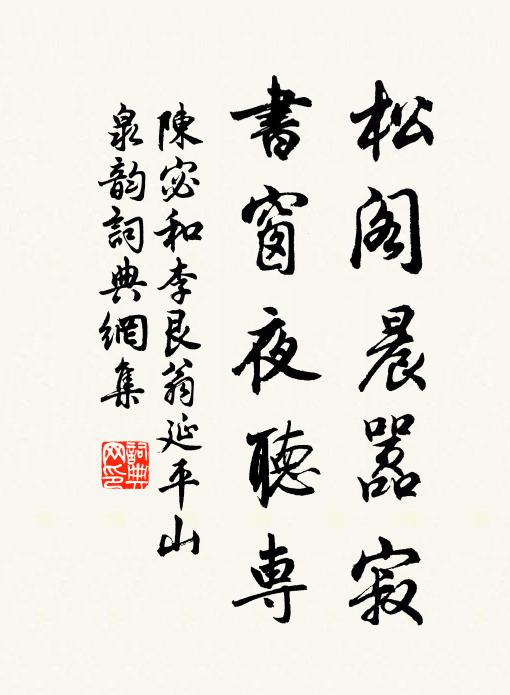 松阁晨嚣寂
書窗夜聽専
陳宓和李艮翁延平山
泉韵詞典網集
詞典网印